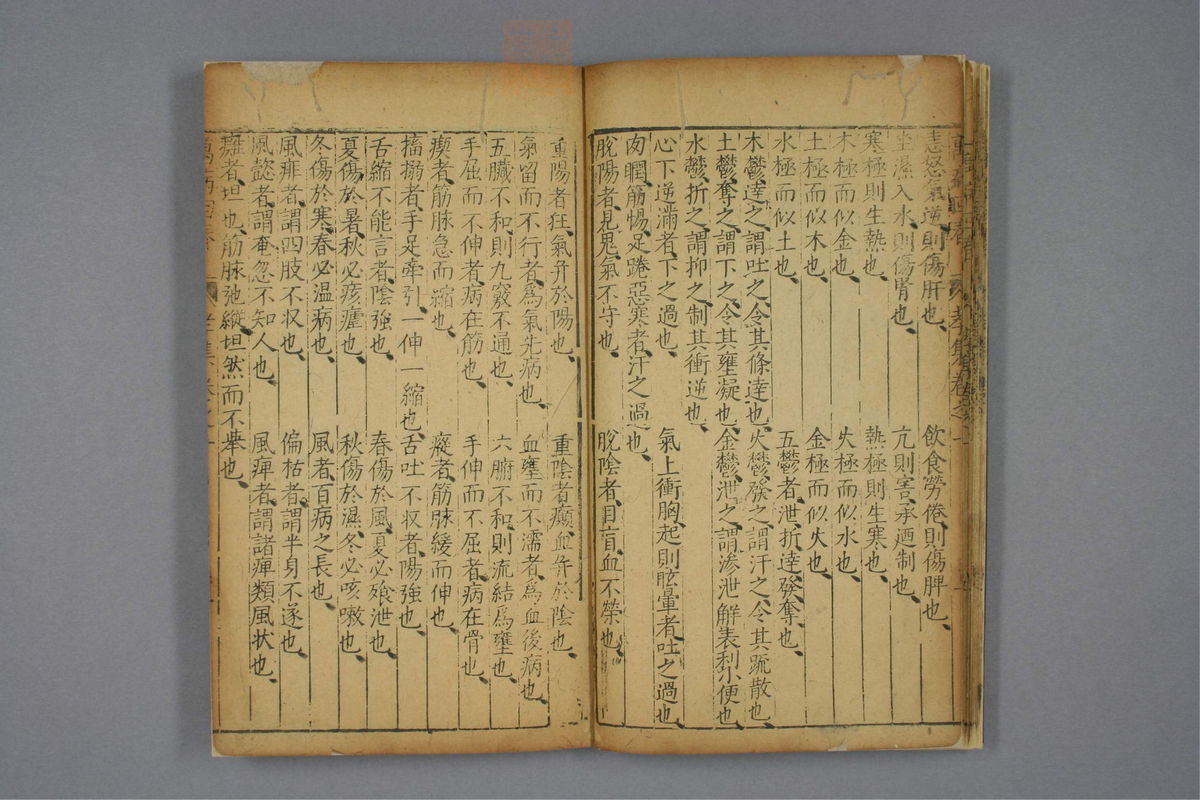 恚怒氣逆則傷肝也 飲食勞倦則傷脾也
坐濕入水則傷腎也 亢則害承廼制也
寒極則生熱也 熱極則生寒也
木極而似金也 火極而似水也
土極而似木也 金極而似火也
水極而似土也 五鬱者泄折達發奪也
木鬱達之謂吐之令其條達也 火鬱發之謂汗之令其疏散也
土鬱奪之謂下之令其壅凝也 金鬱泄之謂滲泄解表利小便也
水鬱折之謂抑之制其衝逆也
心下逆滿者下之過也 氣上衝胸起則眩暈者吐之過也
肉瞤筋惕足踡惡寒者汗之過也
脫陽者見鬼氣不守也 脫陰者目盲血不榮也
重陽者狂氣并於陽也 重陰者癲血并於陰也
氣留而不行者爲氣先病也 血壅而不濡者爲血後病也
五臟不和則九竅不通也 六腑不和則流結爲壅也
手屈而不伸者病在筋也 手伸而不屈者病在骨也
瘈者筋脉急而縮也 瘲者筋脉緩而伸也
搐搦者手足牽引一伸一縮也
舌縮不能言者陰強也 舌吐不收者陽強也
春傷於風夏必飧泄也
夏傷於暑秋必痎瘧也 秋傷於濕冬必咳嗽也
冬傷於寒春必温病也 風者百病之長也
風痱者謂四肢不収也 偏枯者謂半身不遂也
風懿者謂奄忽不知人也 風痺者謂諸痺類風状也
癱者坦也筋脉弛縱坦然而不舉也